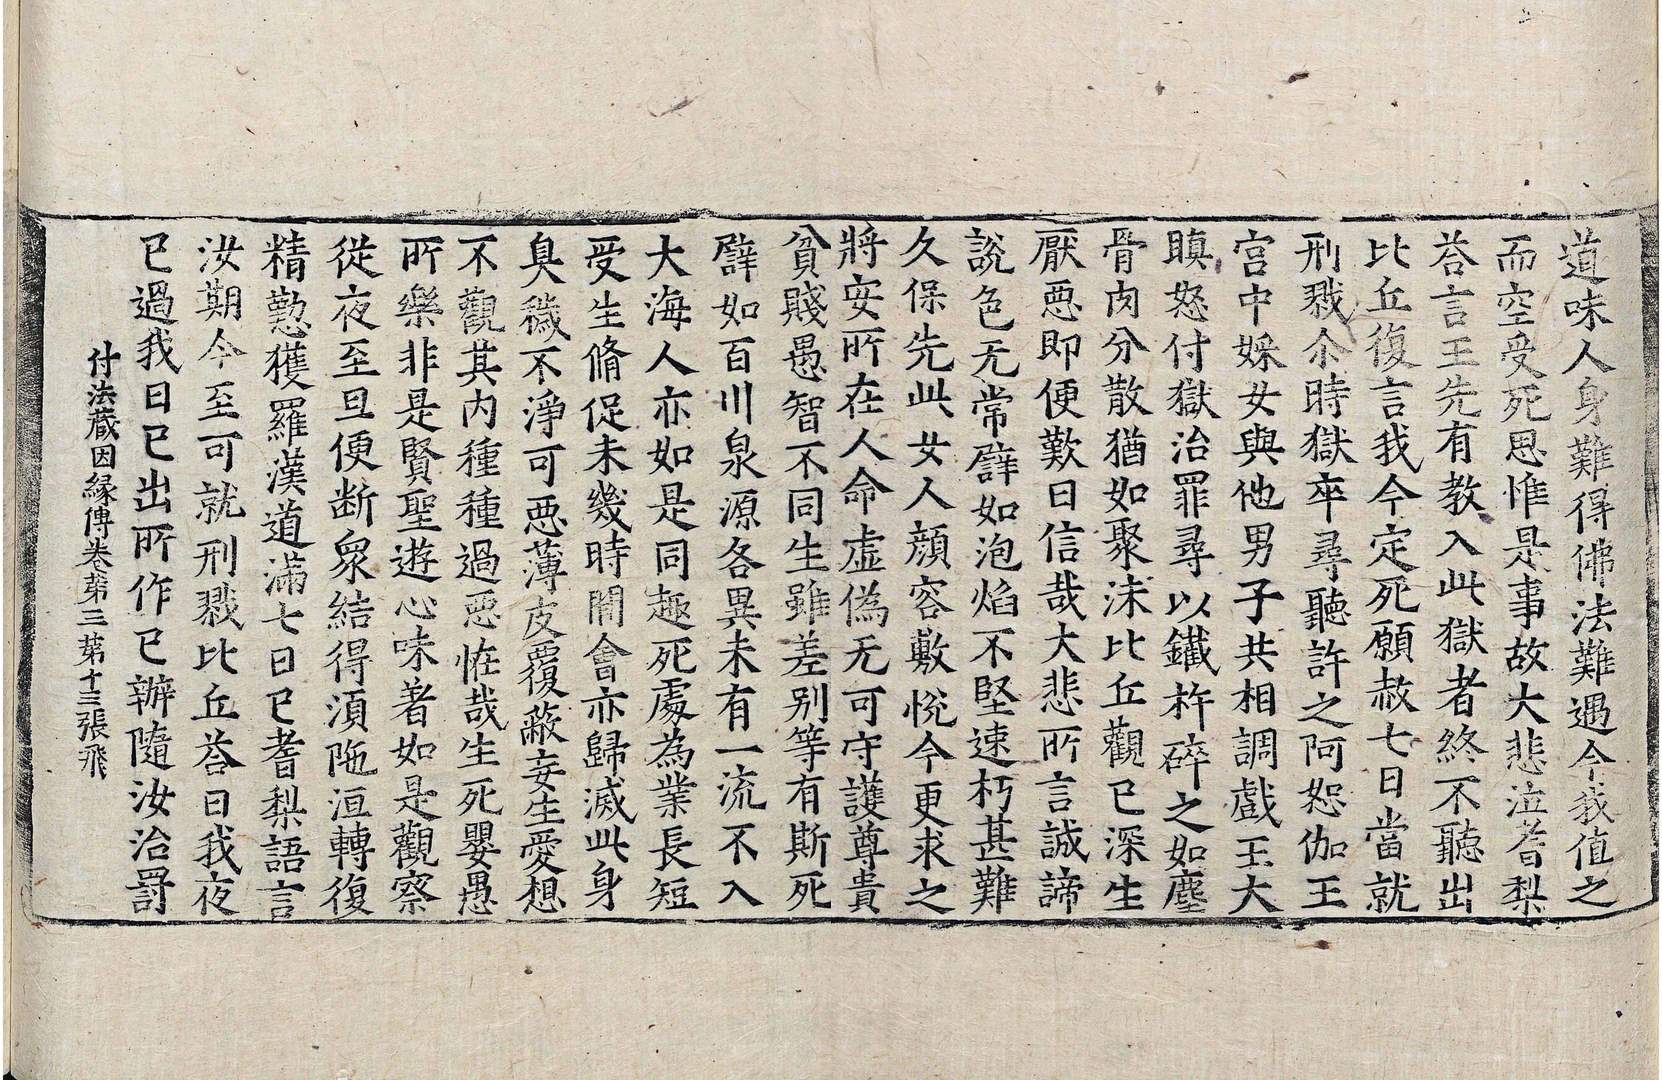 道味人身難得佛法難遇今我值之
而空受死思惟是事故大悲泣耆梨
荅言王先有教入此獄者終不聽出
比丘復言我今定死願赦七日當就
刑戮尒時獄卒尋聽許之阿恕伽王
宮中婇女與他男子共相調戲王大
瞋怒付獄治罪尋以鐵杵碎之如塵
骨肉分散猶如聚沫比丘觀已深生
厭惡即便歎曰信哉大悲所言誠諦
說色无常譬如泡焰不堅速朽甚難
久保先此女人顏容敷悅今更求之
將安所在人命虛偽无可守護尊貴
貧賤愚智不同生雖差別等有斯死
譬如百川泉源各異未有一流不入
大海人亦如是同趣死處為業長短
受生脩促未幾時閒會亦歸滅此身
臭穢不淨可惡薄皮覆蔽妄生愛想
不觀其內種種過惡恠哉生死嬰愚
所樂非是賢聖遊心味著如是觀察
從夜至旦便断衆結得須陁洹轉復
精懃獲羅漢道滿七日已耆梨語言
汝期今至可就刑戮比丘荅曰我夜
已過我日已出所作已辦隨汝治罰
付法藏因縁傳卷第三 第十三張 飛